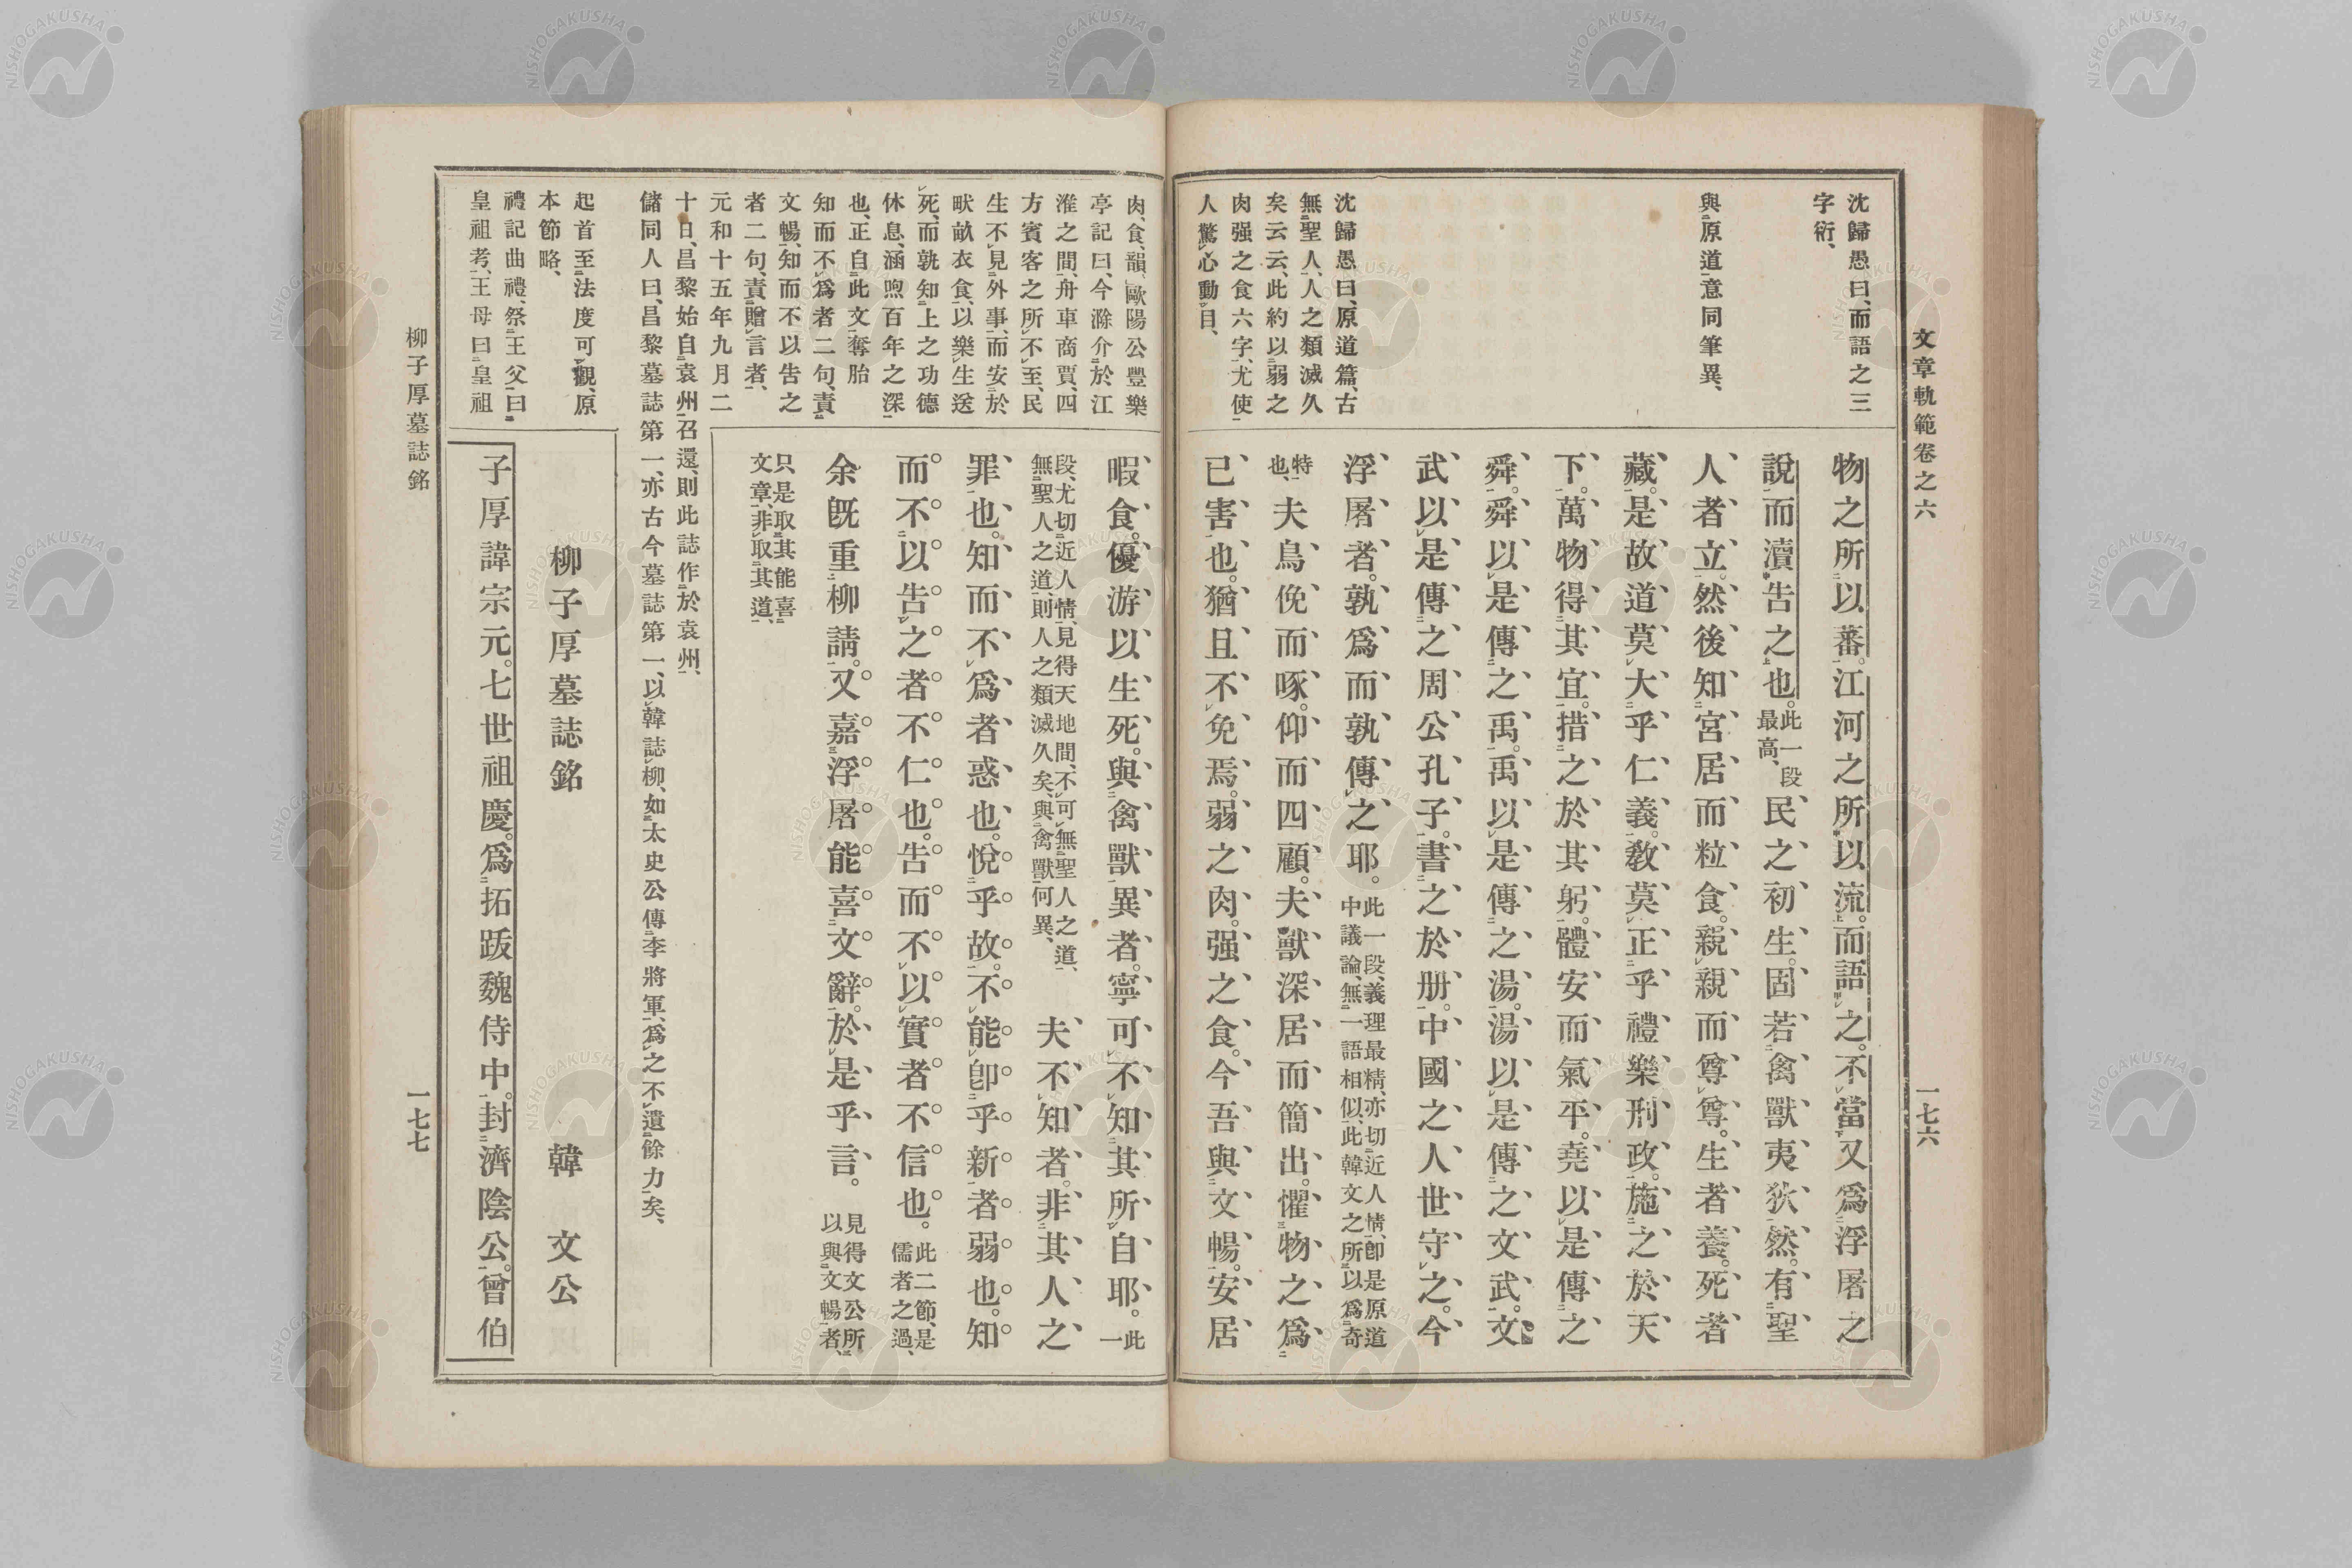 文章軌範卷之六
一七六
沈歸愚曰、而語之三
字衍、
與原道意同筆異、
沈歸愚曰、原道篇、古
無聖人、人之類滅久
矣云云、此約以弱之
肉强之食六字、尤使
人驚心動目、
物之所以蕃。江河之所以流。而語之。不當又爲浮屠之
說而瀆告之也。此一段最高、民之初生。固若禽獸夷狄然。有聖
人者立。然後知宮居而粒食。親親而尊尊。生者養。死者
藏。是故道莫大乎仁義。敎莫正乎禮樂刑政。施之於天
下。萬物得其宜。措之於其躬。體安而氣平。堯以是傳之
舜。舜以是傳之禹。禹以是傳之湯。湯以是傳之文武。文
武以是傳之周公孔子。書之於册。中國之人世守之。今
浮屠者。孰爲而孰傳之耶。此一段、義理最精、亦切近人情、卽是原道
中議論、無一語相似、此韓文之所以爲奇
特也、夫鳥俛而啄。仰而四顧。夫獸深居而簡出。懼物之爲
已害也。猶且不免焉。弱之肉。强之食。今吾與文暢。安居
肉、食、韻、歐陽公豐樂
亭記曰、今滁介於江
淮之間、舟車商賈、四
方賓客之所不至、民
生不見外事、而安於
畎畝衣食、以樂生送
死、而孰知上之功德
休息、涵煦百年之深
也、正自此文奪胎
知而不爲者二句、責
文暢、知而不以告之
者二句、責贈言者、
元和十五年九月二
十日、昌黎始自袁州召還、則此誌作於袁州、
儲同人曰、昌黎墓誌第一、亦古今墓誌第一、以韓誌柳、如太史公傳李將軍、爲之不遺餘力矣、
起首至法度可觀、原
本節略、
禮記曲禮、祭王父曰
皇祖考、王母曰皇祖
暇食。優游以生死。與禽獸異者。寧可不知其所自耶。此一
段、尤切近人情、見得天地間、不可無聖人之道、
無聖人之道、則人之類滅久矣、與禽獸何異、夫不知者。非其人之
罪也。知而不爲者惑也。悅乎故。不能卽乎新者弱也。知
而不以告之者不仁也。告而不以實者不信也。此二節、是
儒者之過、
余旣重柳請。又嘉浮屠能喜文辭。於是乎言。見得文公所
以與文暢者、
只是取其能喜
文章、非取其道、
柳子厚墓誌銘
韓文公
子厚諱宗元。七世祖慶。爲拓跋魏侍中。封濟陰公。曾伯
柳子厚墓誌銘
一七七
NISHOGAKUSHA